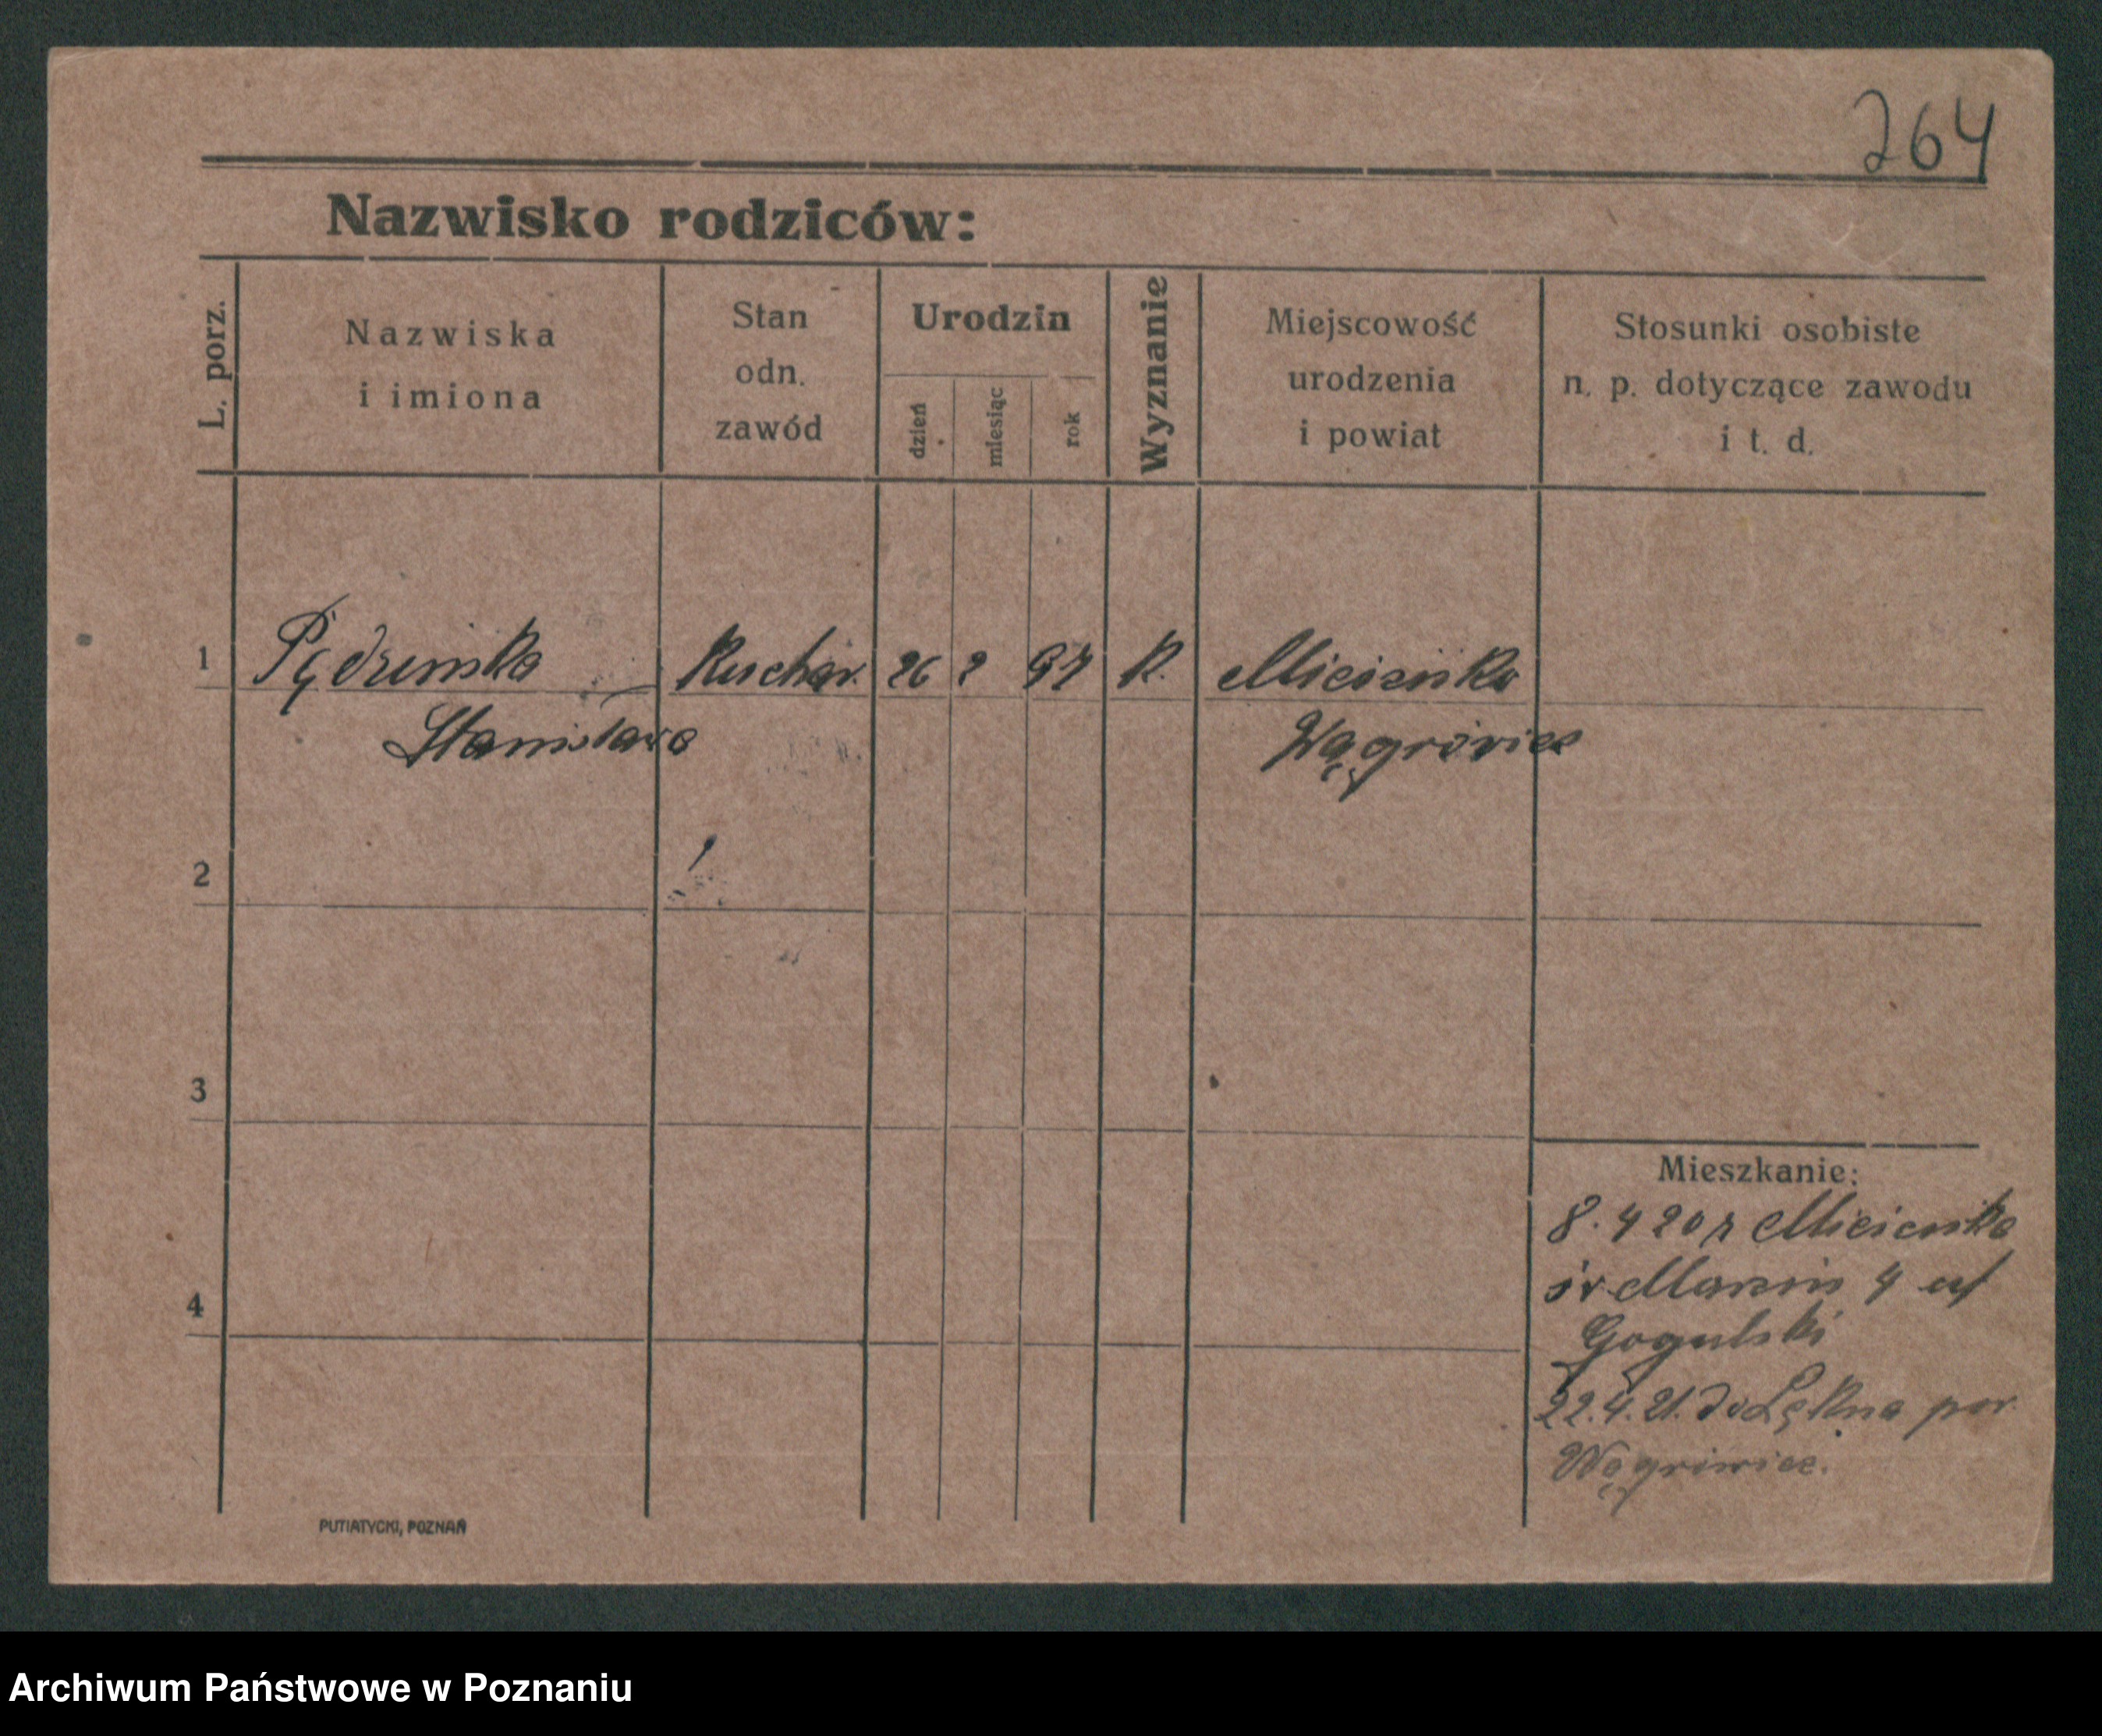 264
Nazwisko rodziców:
L. porz.
Nazwiska
i imiona
Stan
odn.
zawód
Urodzin
dzień
miesiąc
rok
Wyznanie
Miejscowość
urodzenia
i powiat
Stosunki osobiste
n. p. dotyczące zawodu
i t. d.
1
Kuchar. 26 2 97 K.
Stanisława
Wągrówiec
2
3
4
Mieszkanie:
8. 4 20 z
św Marcin 4 u/
Gogulski
22.4.21. do Łękna pow.
Wągrówiec.
PUTIATYCKI, POZNAŃ
Archiwum Państwowe w Poznaniu